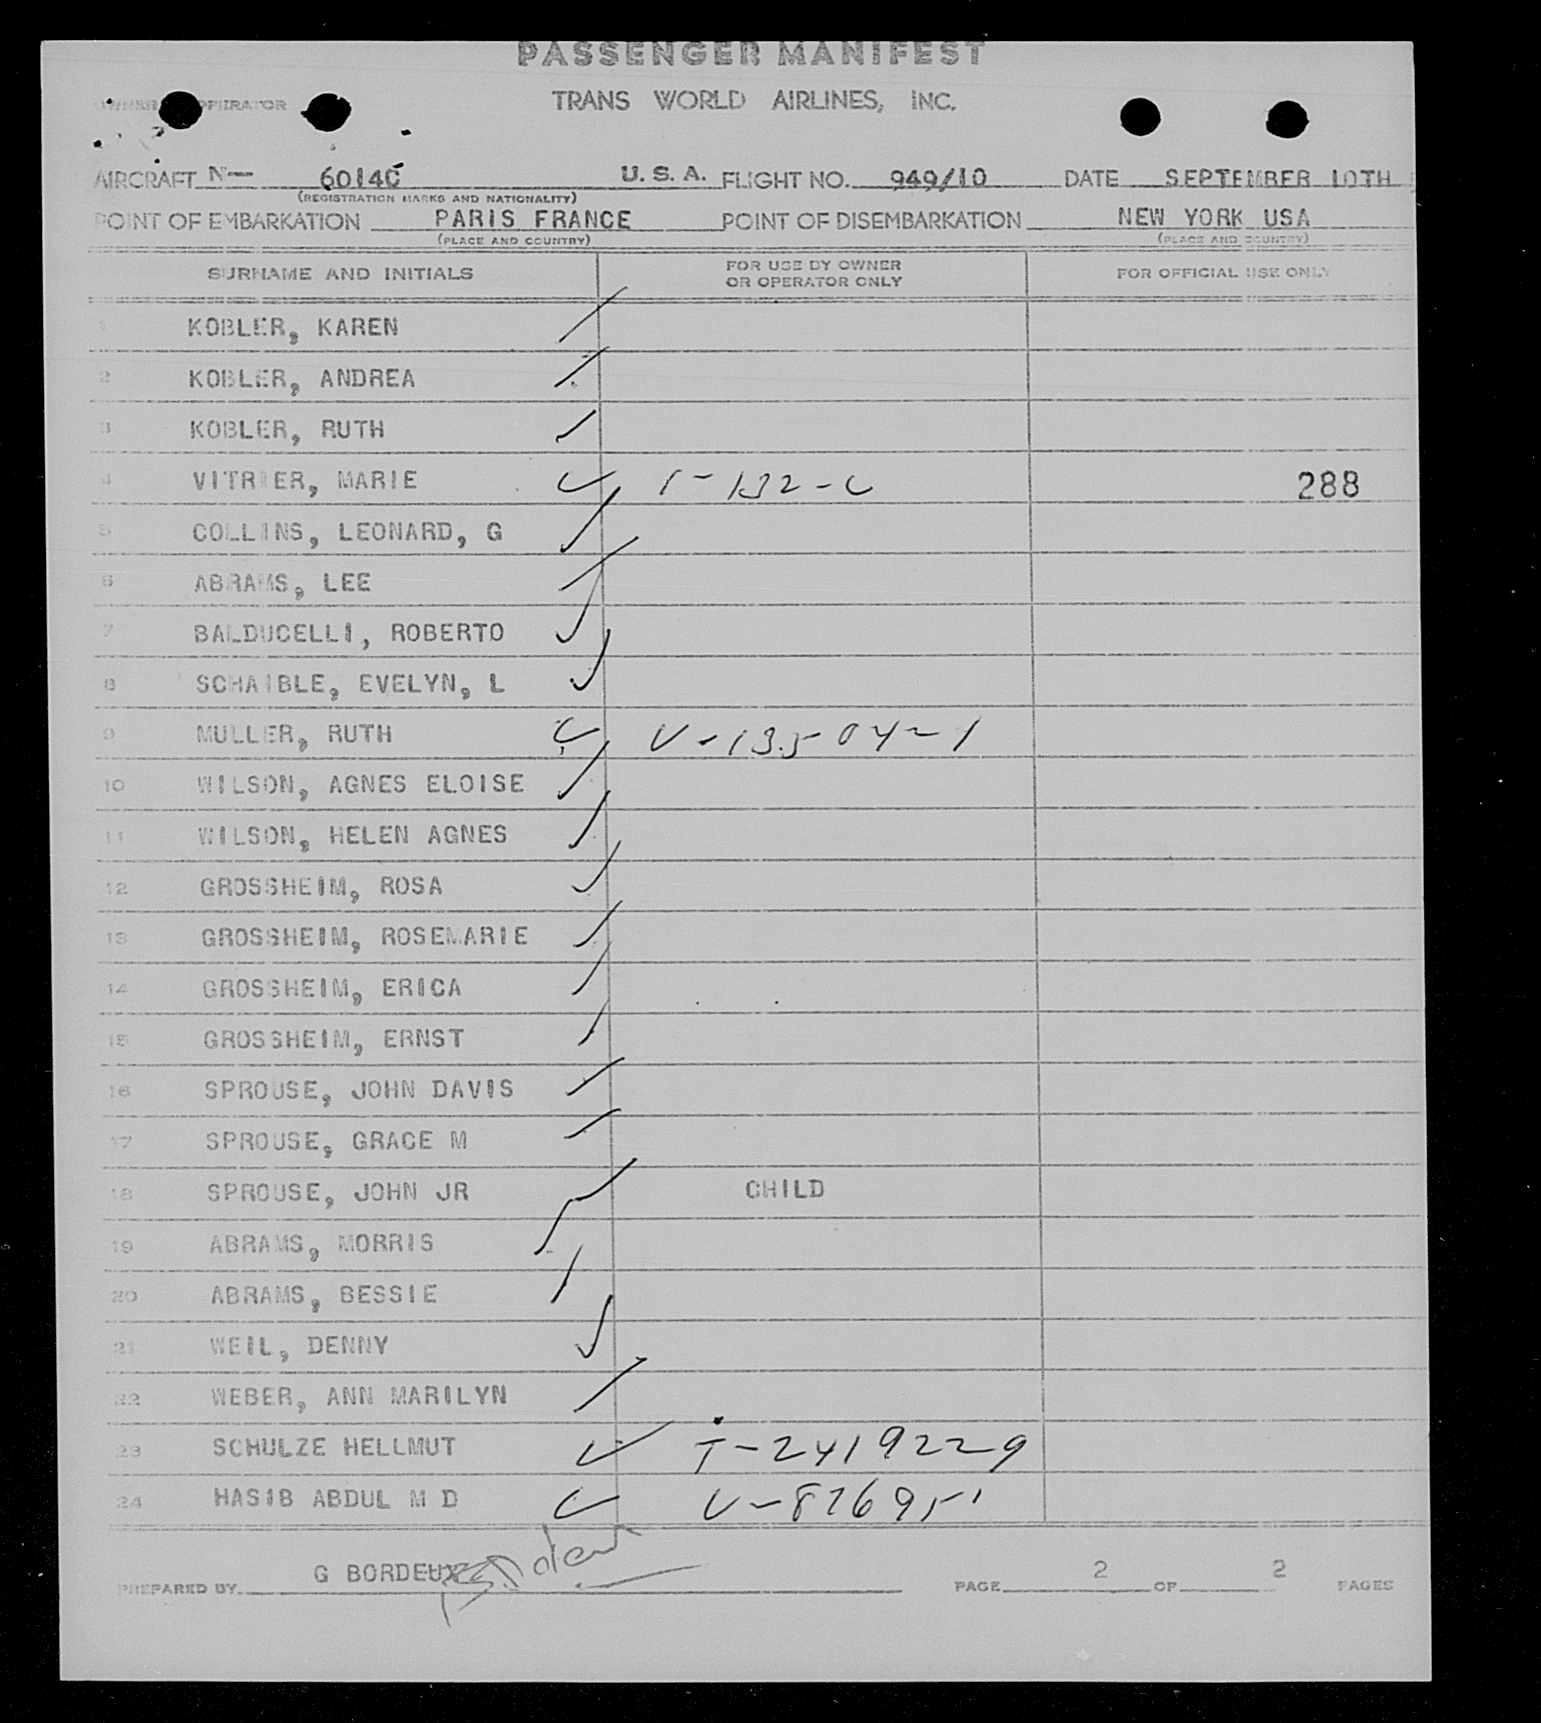 PASSENGER MANIFEST
OWNER OPERATOR TRANS WORLD AIRLINES, INC.
AIRCRAFT N— 6014C U. S. A. FLIGHT NO. 949/10 DATE SEPTEMBER 10TH
(REGISTRATION MARKS AND NATIONALITY)
POINT OF EMBARKATION PARIS FRANCE POINT OF DISEMBARKATION NEW YORK USA
(PLACE AND COUNTRY) (PLACE AND COUNTRY)
SURNAME AND INITIALS FOR USE BY OWNER OR OPERATOR ONLY FOR OFFICIAL USE ONLY
1 KOBLER, KAREN
2 KOBLER, ANDREA
3 KOBLER, RUTH
4 VITRIER, MARIE 1-132-C 288
5 COLLINS, LEONARD, G
6 ABRAMS, LEE
7 BALDUCELLI, ROBERTO
8 SCHAIBLE, EVELYN, L
9 MULLER, RUTH V-13504-1
10 WILSON, AGNES ELOISE
11 WILSON, HELEN AGNES
12 GROSSHEIM, ROSA
13 GROSSHEIM, ROSEMARIE
14 GROSSHEIM, ERICA
15 GROSSHEIM, ERNST
16 SPROUSE, JOHN DAVIS
17 SPROUSE, GRACE M
18 SPROUSE, JOHN JR CHILD
19 ABRAMS, MORRIS
20 ABRAMS, BESSIE
21 WEIL, DENNY
22 WEBER, ANN MARILYN
23 SCHULZE HELLMUT T-2419229
24 HASIB ABDUL M D V-876951
PREPARED BY G BORDEUX PAGE 2 OF 2 PAGES